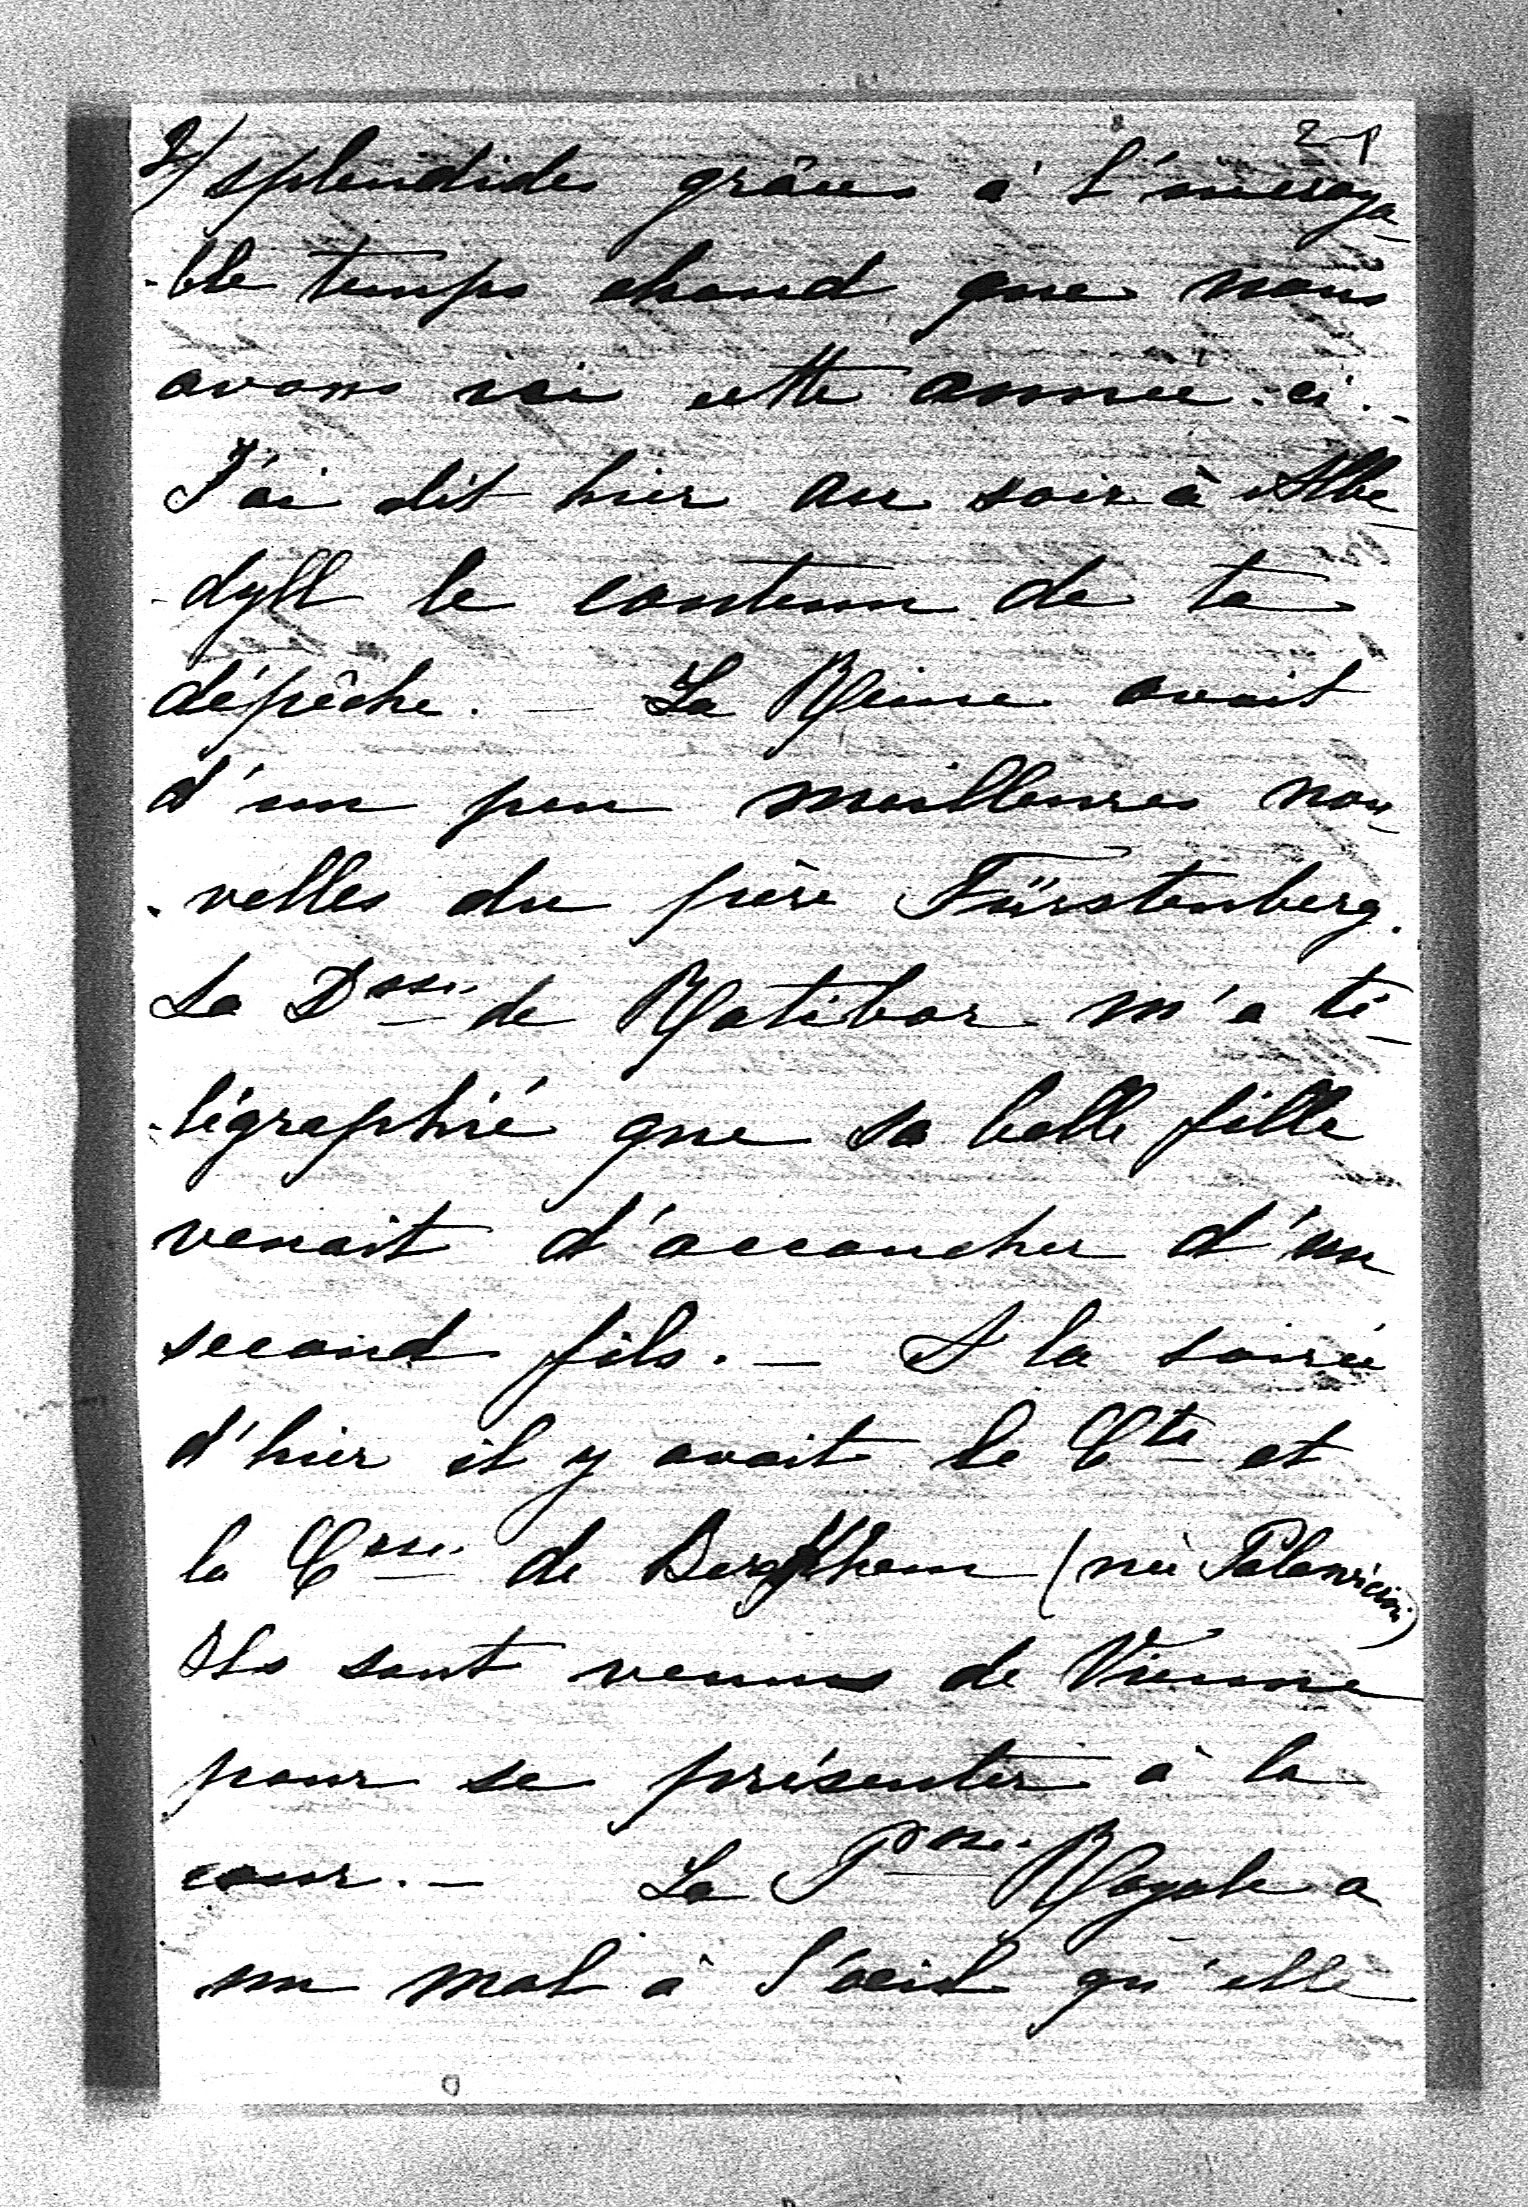 2/ splendides grâces à l'incroya-
-ble temps chaud que nous
avons ici cette année-ci. -
J'ai dit hier au soir à Albe-
-dyll le contenu de ta
dépêche. - La Reine avait
d'un peu meilleures nou-
-velles du père Fürstenberg.
La Dsse. de Ratibor m'a té-
-légraphié que sa belle fille
venait d'accoucher d'un
second fils. - A la soirée
d'hier il y avait le Cte et
la Csse. de Berkheim (née Palavicini)
Ils sont venus de Vienne
pour se présenter à la
cour. - La Psse. Royale a
un mal à l'œil qu'elle